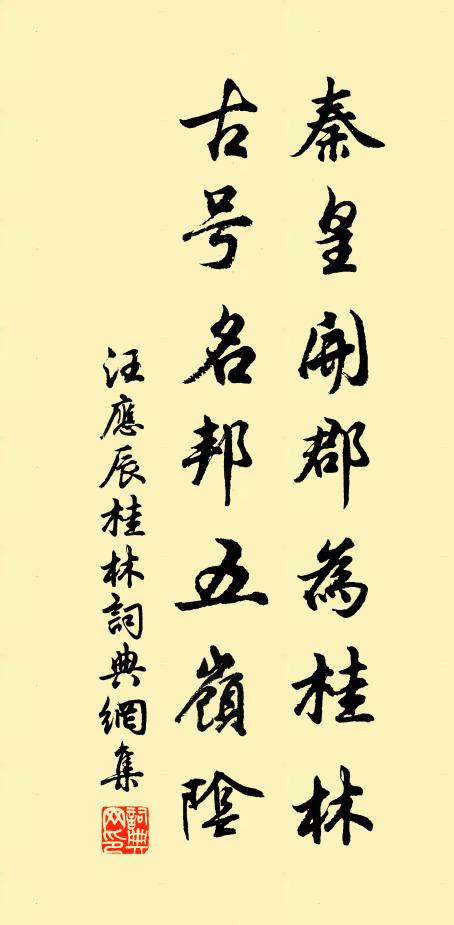 秦皇開郡為桂林
古号名邦五嶺陰
汪應辰桂林詞典網集
詞典网印